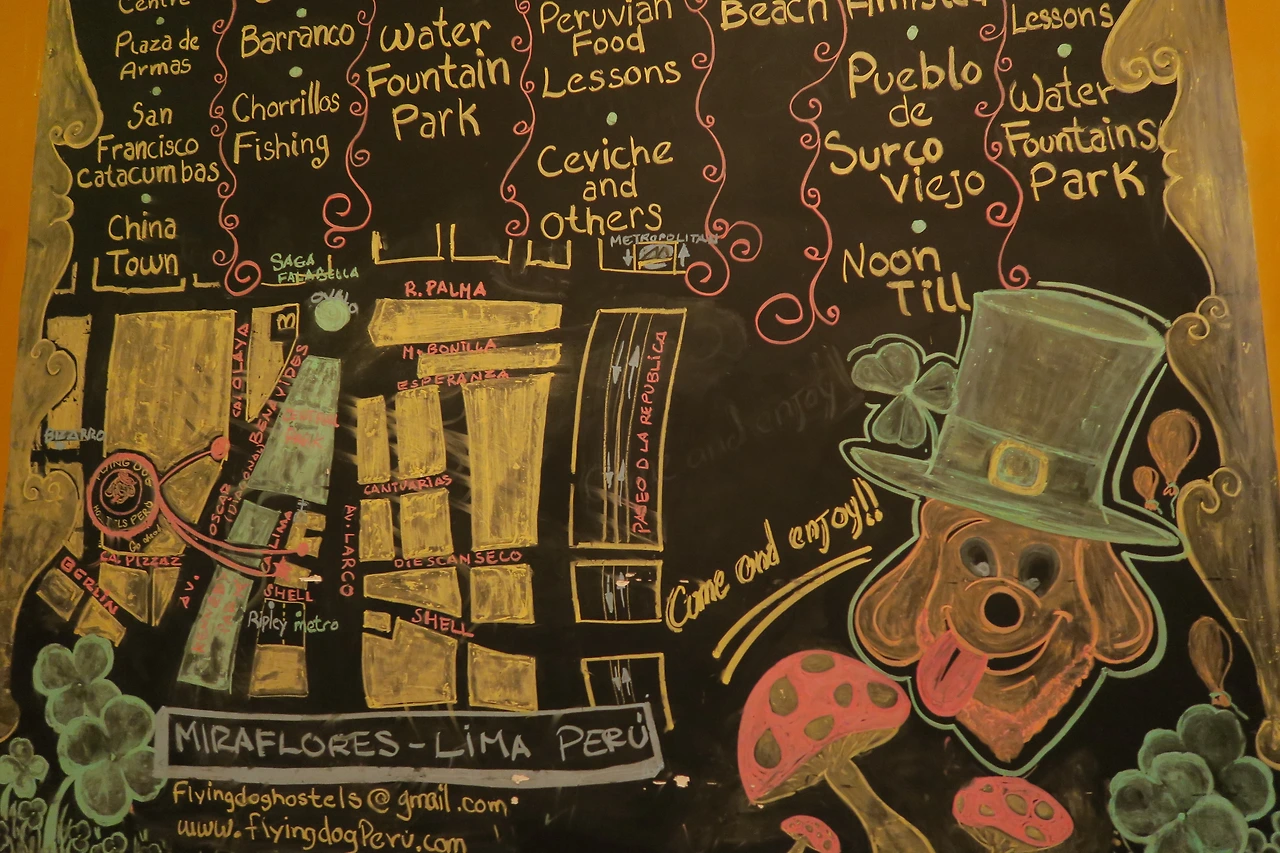 Centre
Plaza de
Armas
San
Francisco
Catacumbas
China
Town
Barranco
Chorrillos
Fishing
Water
Fountain
Park
Peruvian
Food
Lessons
Ceviche
and
Others
Beach
Pueblo
de
Surco
Viejo
Noon
Till
Lessons
Water
Fountains
Park
METROPOLITAN
SAGA
FALABELLA
OVALO
R. PALMA
M. BONILLA
ESPERANZA
CANTUARIAS
DIESCANSECO
SHELL
PASEO D LA REPUBLICA
AV. LARCO
CA. OLAYA
BENAVIDES
(DIAGONAL)
AV. OSCAR
FLYING DOG
HOSTELS PERU
CA. PIZZAZ
BERLIN
LIMA
SHELL
Ripley metro
Come and enjoy!!
MIRAFLORES - LIMA PERÚ
Flyingdoghostels@gmail.com
www.flyingdogPeru.com